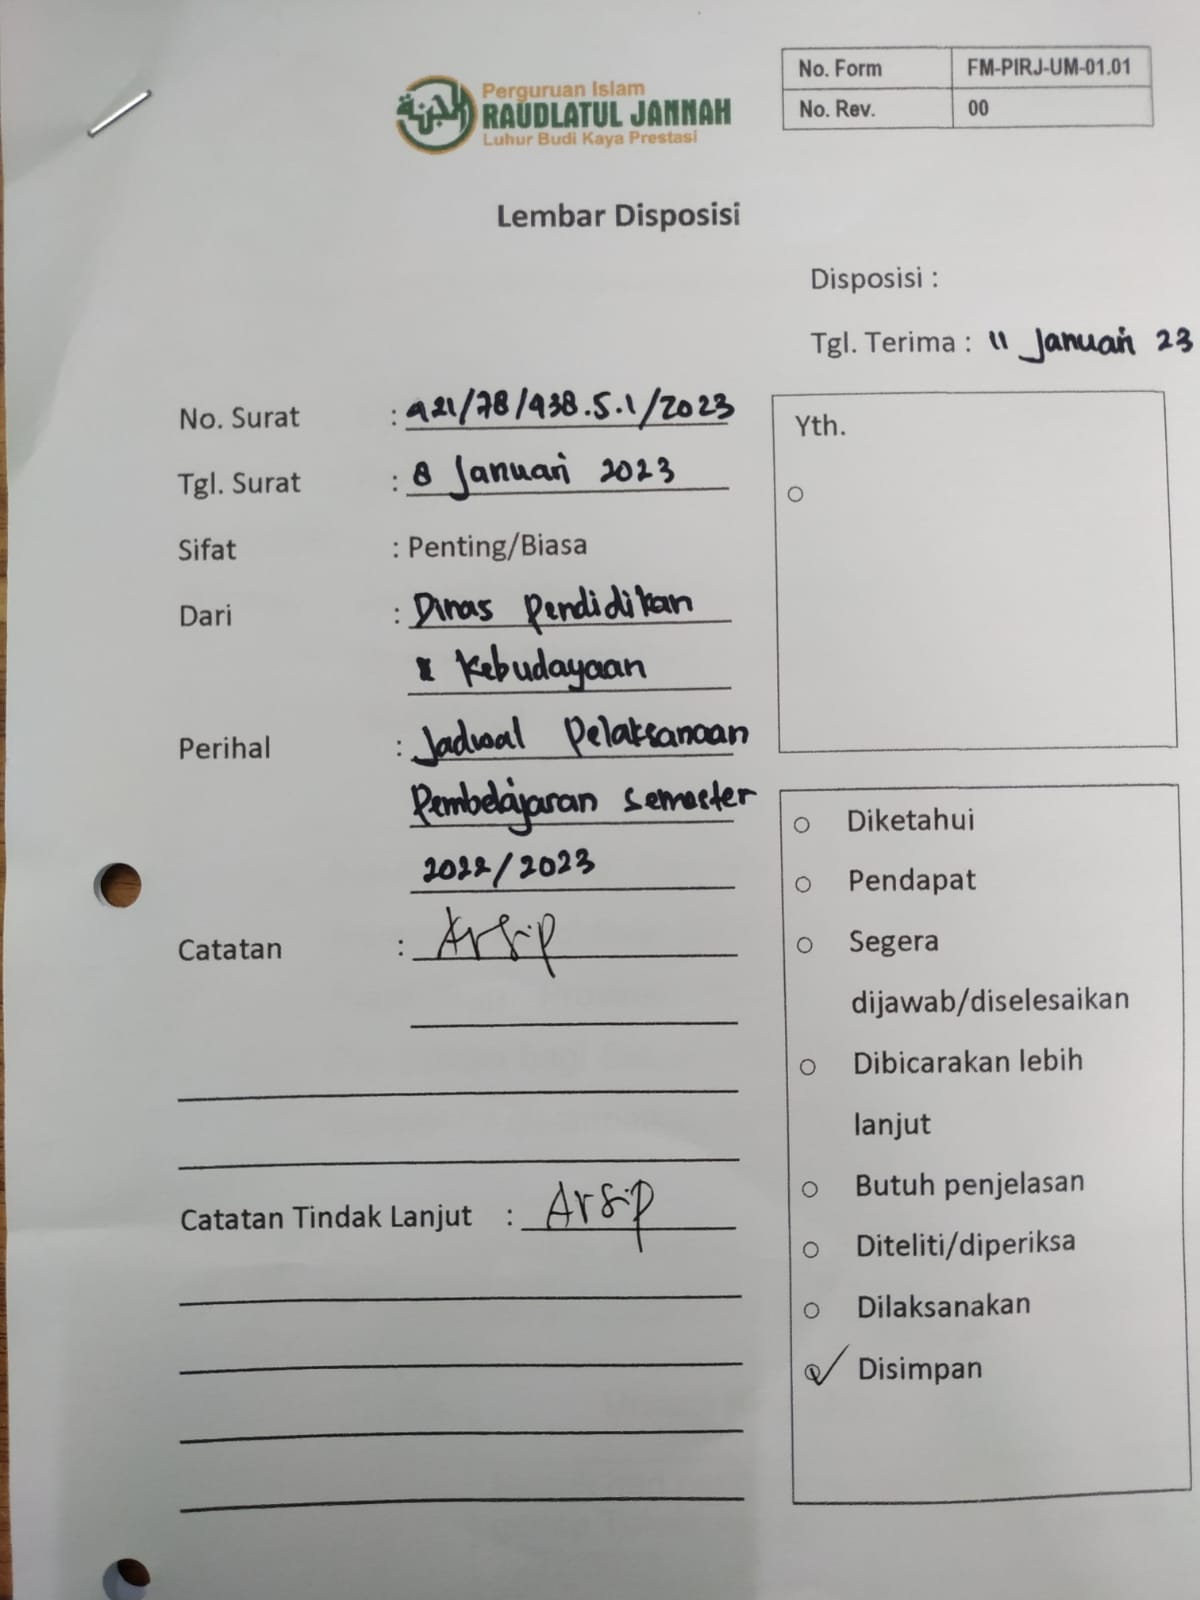 Perguruan Islam
RAUDLATUL JANNAH
Luhur Budi Kaya Prestasi
No. Form FM-PIRJ-UM-01.01
No. Rev. 00
Lembar Disposisi
Disposisi :
Tgl. Terima : 11 Januari 23
No. Surat : 421/78/438.5.1/2023
Tgl. Surat : 8 Januari 2023
Sifat : Penting/Biasa
Dari : Dinas Pendidikan
& Kebudayaan
Perihal : Jadwal Pelaksanaan
Pembelajaran semester
2022/2023
Catatan : Arsip
Catatan Tindak Lanjut : Arsip
Yth.
Diketahui
Pendapat
Segera
dijawab/diselesaikan
Dibicarakan lebih
lanjut
Butuh penjelasan
Diteliti/diperiksa
Dilaksanakan
Disimpan